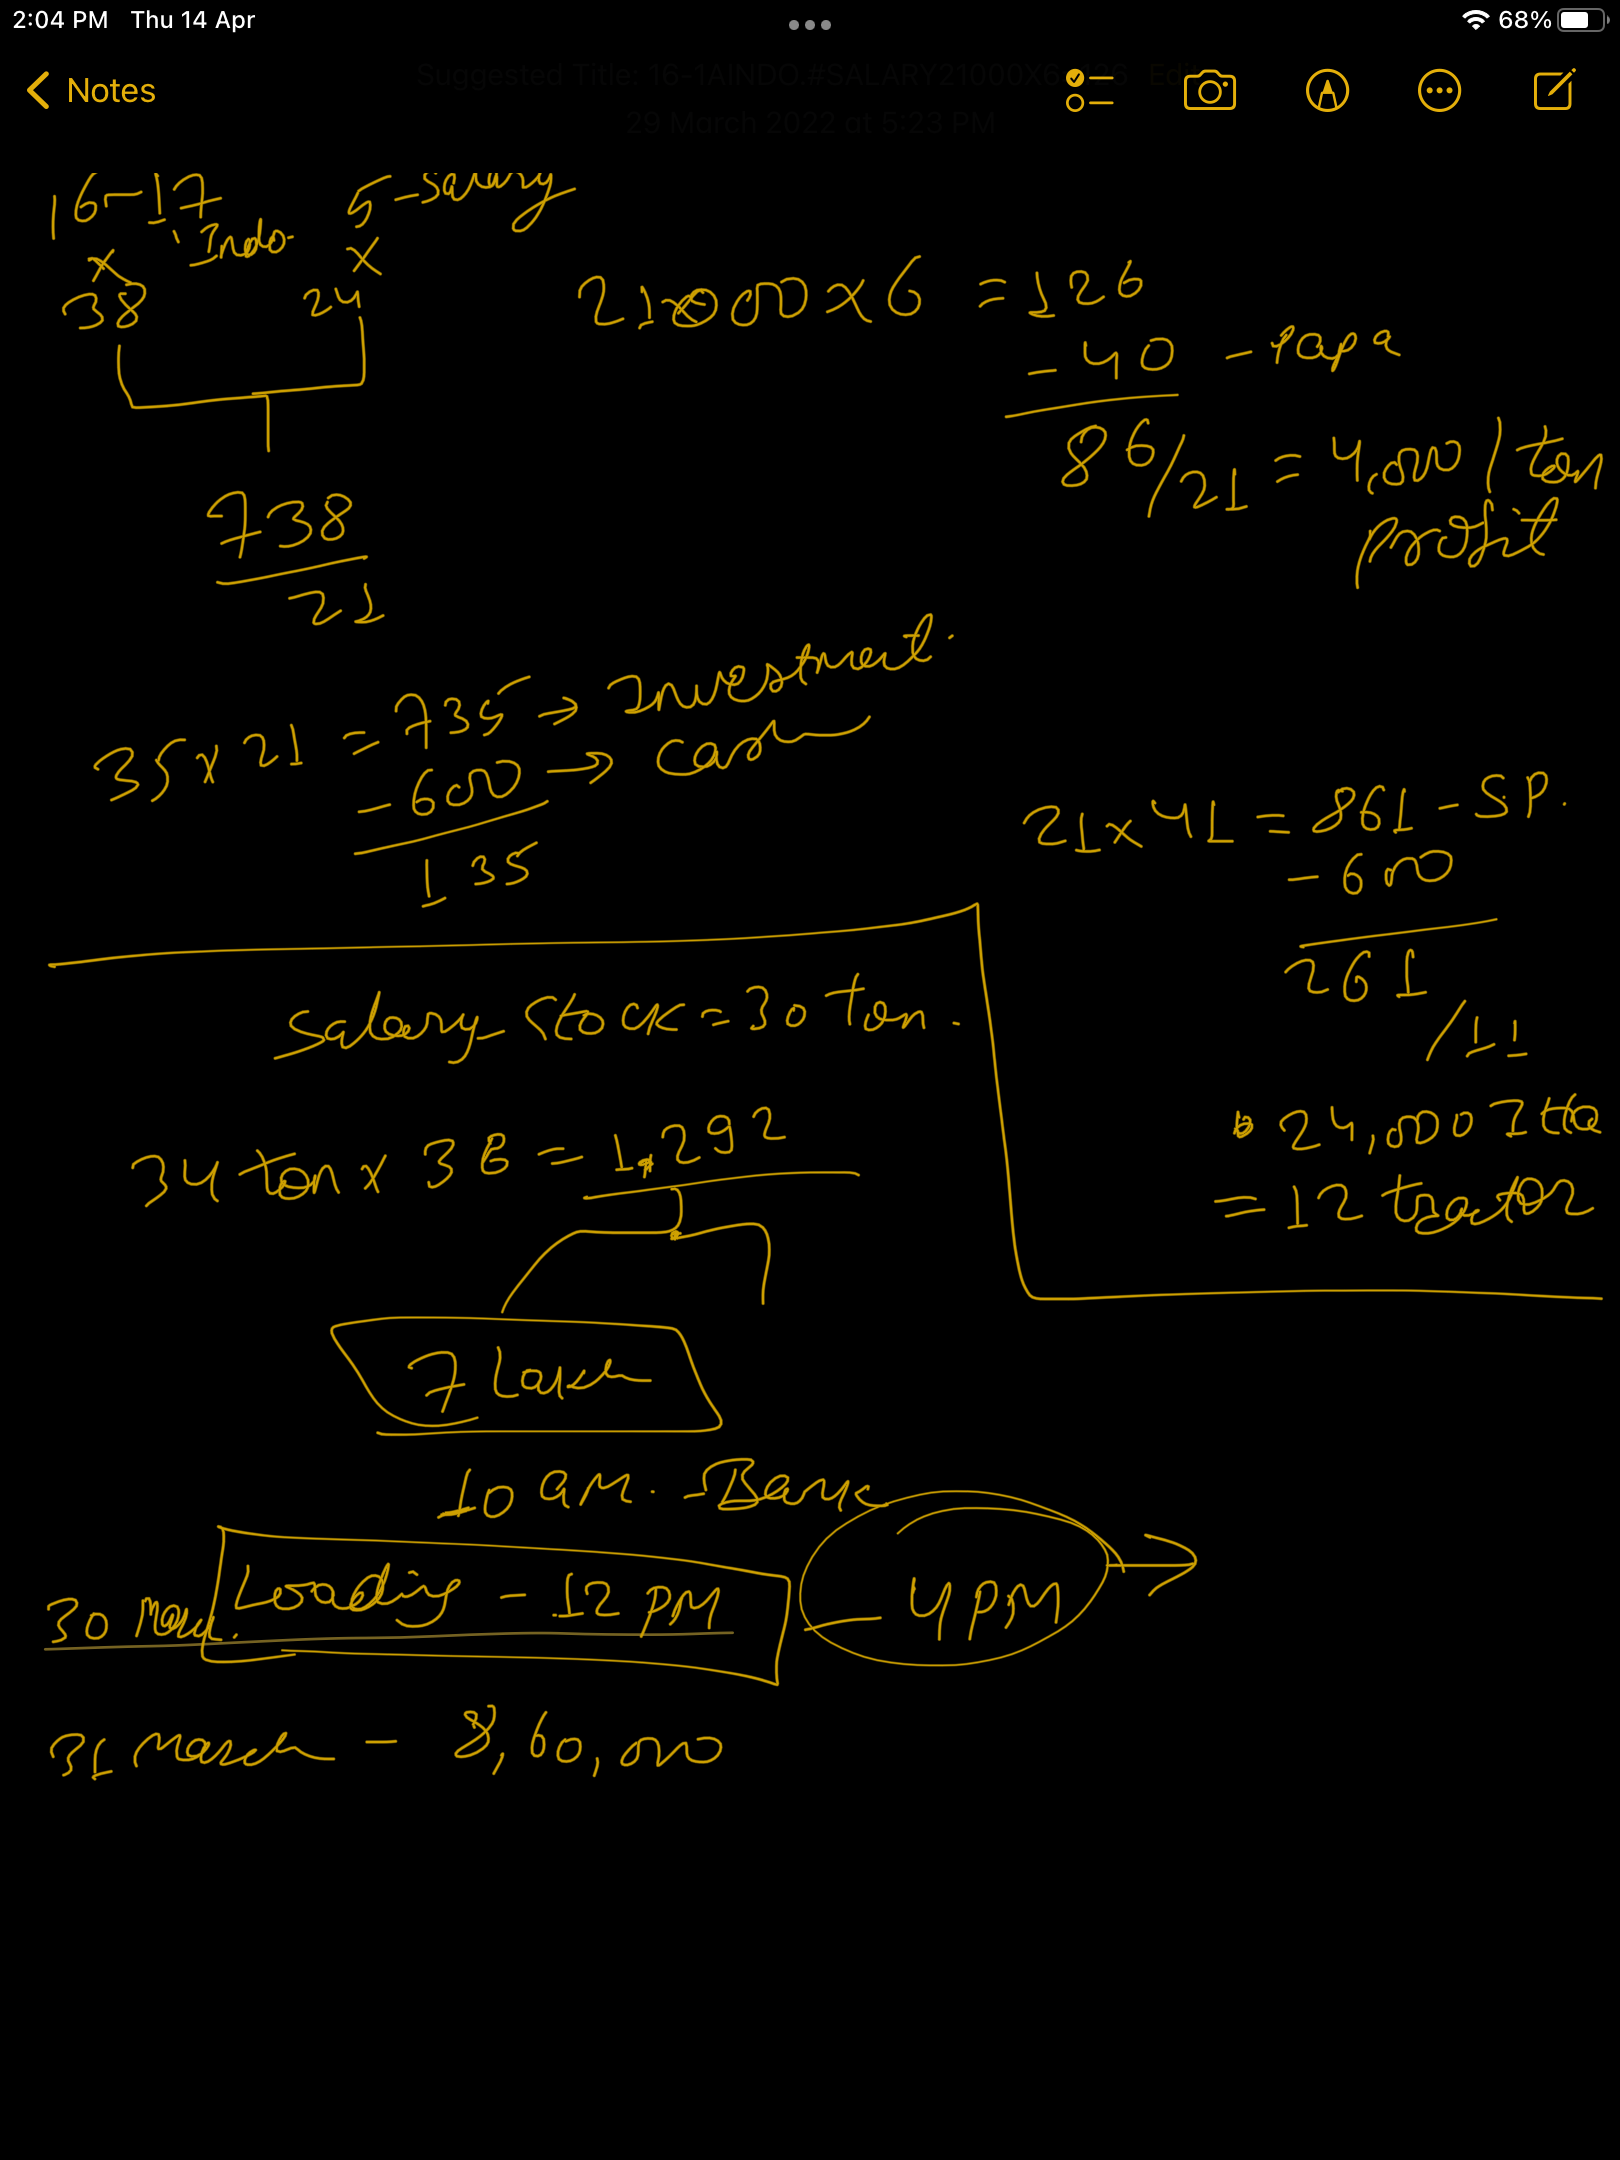 2:04 PM Thu 14 Apr
68%
Notes
Suggested Title: 16-1AINDO.#SALARY21000X6
29 March 2022 at 5:23 PM
16-17 5-Salary
Indo
x x
38 24
21000 x 6 = 126
- 40 - Papa
86/21 = 4,000 / ton
profit
738
21
35 x 21 = 735 → Investment.
- 600 → cash
135
21 x 41 = 861 - S.P.
- 600
261
/11
24,000 Itta
= 12 tractor
Salary Stock = 30 ton.
34 ton x 38 = 1,292
7 Lakh
10 am. - Bank
30 Marc. Loading - 12 PM - 4 PM →
31 March - 8,60,000